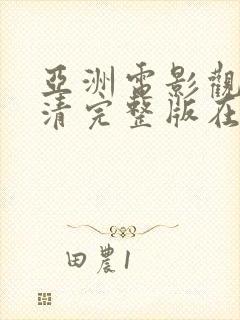 亞洲電影觀
清完整版在
田農1